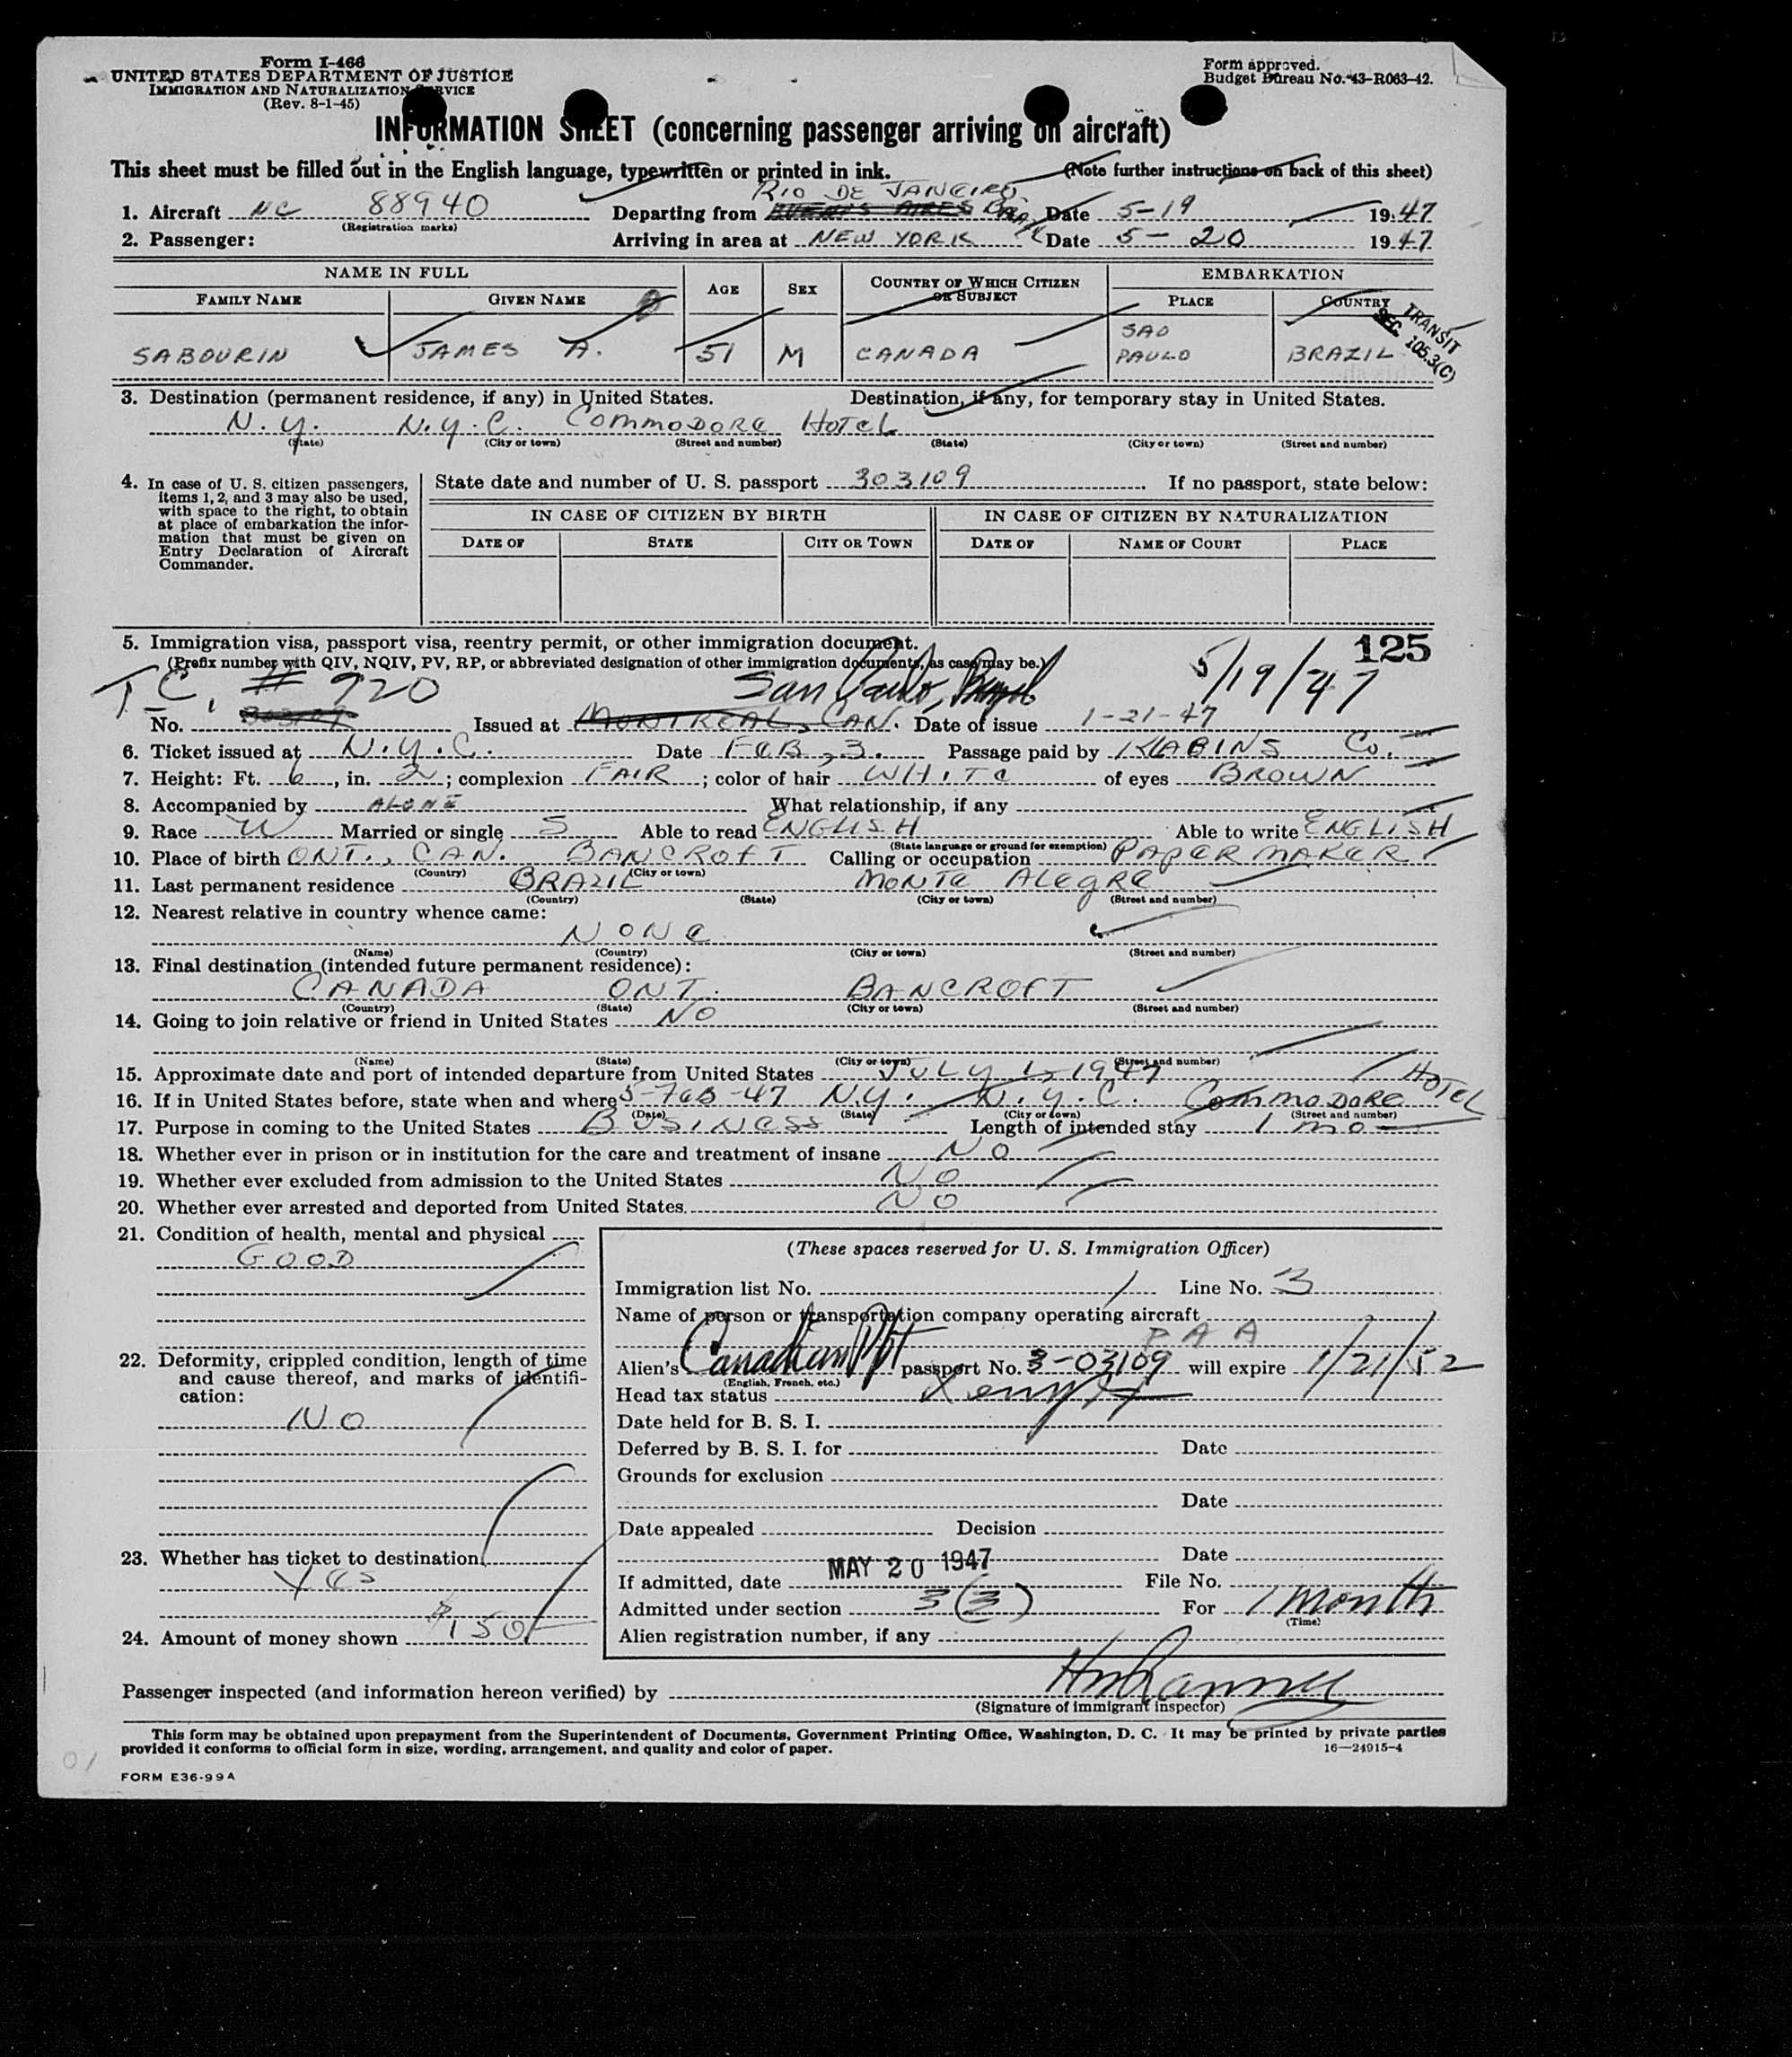 Form I-466
UNITED STATES DEPARTMENT OF JUSTICE
IMMIGRATION AND NATURALIZATION SERVICE
(Rev. 8-1-45)
Form approved.
Budget Bureau No. 43-R063-42.
INFORMATION SHEET (concerning passenger arriving on aircraft)
This sheet must be filled out in the English language, typewritten or printed in ink. (Note further instructions on back of this sheet)
RIO DE JANEIRO
1. Aircraft NC 88940 Departing from BUENOS AIRES BRAZ Date 5-19 1947
(Registration marks)
2. Passenger: Arriving in area at NEW YORK Date 5-20 1947
NAME IN FULL AGE SEX COUNTRY OF WHICH CITIZEN OR SUBJECT EMBARKATION
FAMILY NAME GIVEN NAME PLACE COUNTRY
TRANSIT
SEC. 105.3(C)
SABOURIN JAMES A. 51 M CANADA SAO PAULO BRAZIL
3. Destination (permanent residence, if any) in United States. Destination, if any, for temporary stay in United States.
N.Y. N.Y.C. COMMODORE HOTEL
(State) (City or town) (Street and number) (State) (City or town) (Street and number)
4. In case of U. S. citizen passengers, items 1, 2, and 3 may also be used, with space to the right, to obtain at place of embarkation the information that must be given on Entry Declaration of Aircraft Commander.
State date and number of U. S. passport 303109 If no passport, state below:
IN CASE OF CITIZEN BY BIRTH IN CASE OF CITIZEN BY NATURALIZATION
DATE OF STATE CITY OR TOWN DATE OF NAME OF COURT PLACE
5. Immigration visa, passport visa, reentry permit, or other immigration document. 125
(Prefix number with QIV, NQIV, PV, RP, or abbreviated designation of other immigration documents, as case may be.)
T.C. # 920 San Paulo, Brazil 5/19/47
No. 303109 Issued at MONTREAL, CAN. Date of issue 1-21-47
6. Ticket issued at N.Y.C. Date FEB, 3. Passage paid by KLABINS Co.
7. Height: Ft. 6, in. 2; complexion FAIR; color of hair WHITE of eyes BROWN
8. Accompanied by ALONE What relationship, if any
9. Race W Married or single S Able to read ENGLISH Able to write ENGLISH
(State language or ground for exemption)
10. Place of birth ONT., CAN. BANCROFT Calling or occupation PAPERMAKER
(Country) (City or town)
11. Last permanent residence BRAZIL MONTE ALEGRE
(Country) (State) (City or town) (Street and number)
12. Nearest relative in country whence came:
NONE
(Name) (Country) (City or town) (Street and number)
13. Final destination (intended future permanent residence):
CANADA ONT. BANCROFT
(Country) (State) (City or town) (Street and number)
14. Going to join relative or friend in United States NO
(Name) (State) (City or town) (Street and number)
15. Approximate date and port of intended departure from United States JULY 1, 1947
16. If in United States before, state when and where 5-FEB-47 N.Y. N.Y.C. COMMODORE HOTEL
(Date) (State) (City or town) (Street and number)
17. Purpose in coming to the United States BUSINESS Length of intended stay 1 mo
18. Whether ever in prison or in institution for the care and treatment of insane NO
19. Whether ever excluded from admission to the United States NO
20. Whether ever arrested and deported from United States. NO
21. Condition of health, mental and physical
GOOD
22. Deformity, crippled condition, length of time and cause thereof, and marks of identification:
NO
23. Whether has ticket to destination.
YES
24. Amount of money shown $150
(These spaces reserved for U. S. Immigration Officer)
Immigration list No. 1 Line No. 3
Name of person or transportation company operating aircraft
PAA
Alien's Canadian Ppt passport No. 3-03109 will expire 1/21/52
(English, French, etc.)
Head tax status Xempt
Date held for B. S. I.
Deferred by B. S. I. for Date
Grounds for exclusion
Date
Date appealed Decision
Date
If admitted, date MAY 20 1947 File No.
Admitted under section 3(3) For 1 Month
(Time)
Alien registration number, if any
Passenger inspected (and information hereon verified) by
(Signature of immigrant inspector)
This form may be obtained upon prepayment from the Superintendent of Documents, Government Printing Office, Washington, D. C. It may be printed by private parties
provided it conforms to official form in size, wording, arrangement, and quality and color of paper. 16—24915-4
FORM E36-99A